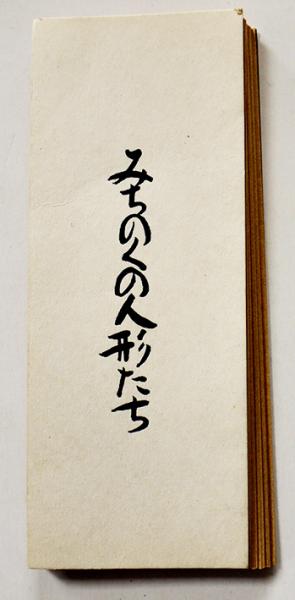 みちのくの人形たち